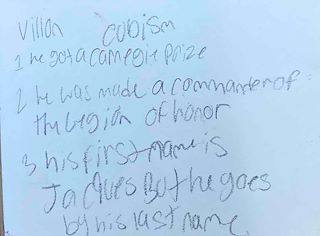 Villon cubism
1 he got a carnegie prize
2 he was made a commander of
the legion of honor
3 his first name is
Jacques But he goes
by his last name.